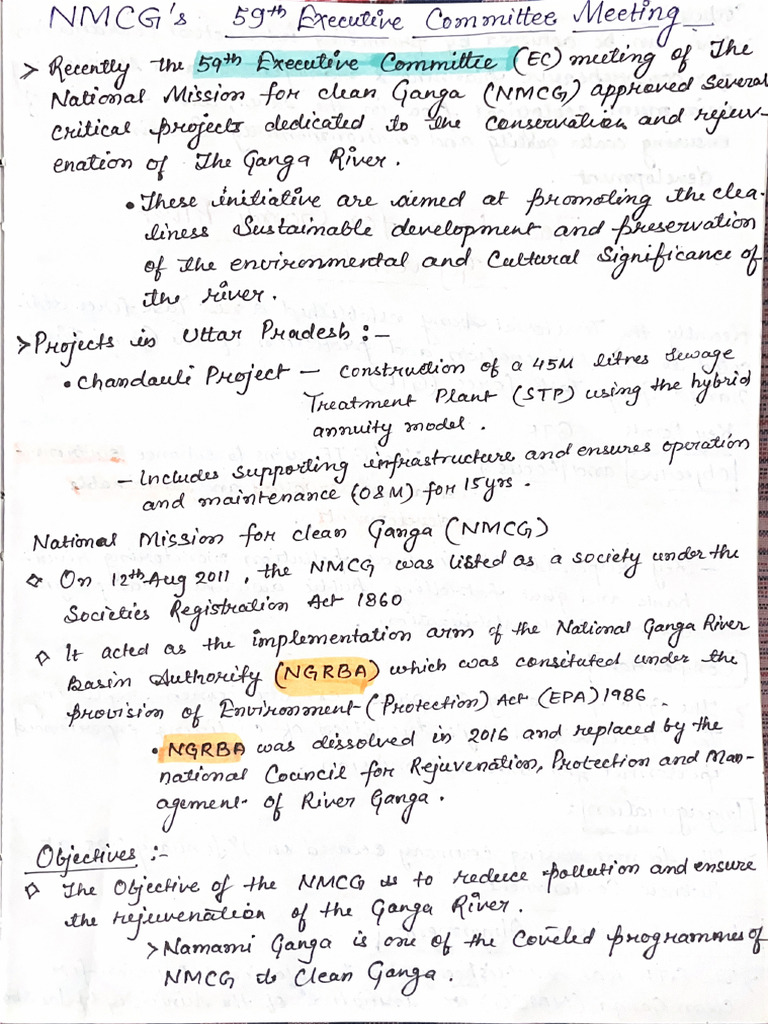 NMCG's 59th Executive Committee Meeting.
> Recently the 59th Executive Committee (EC) meeting of The
National Mission for clean Ganga (NMCG) approved several
critical projects dedicated to the conservation and rejuv-
enation of The Ganga River.
• These initiative are aimed at promoting the clea-
liness Sustainable development and preservation
of the environmental and Cultural Significance of
the river.
> Projects in Uttar Pradesh :-
• Chandauli Project — construction of a 45M litres Sewage
Treatment Plant (STP) using the hybrid
annuity model.
- Includes supporting infrastructure and ensures operation
and maintenance (O&M) for 15yrs.
National Mission for clean Ganga (NMCG)
◇ On 12th Aug 2011, the NMCG was listed as a society under the
Societies Registration Act 1860
◇ It acted as the implementation arm of the National Ganga River
Basin Authority (NGRBA) which was consituated under the
provision of Environment (Protection) Act (EPA) 1986.
• NGRBA was dissolved in 2016 and replaced by the
national Council for Rejuvenation, Protection and Man-
agement of River Ganga.
Objectives :-
◇ The Objective of the NMCG is to reduce pollution and ensure
the rejuvenation of the Ganga River.
> Namami Ganga is one of the Coveled programmes of
NMCG to Clean Ganga.